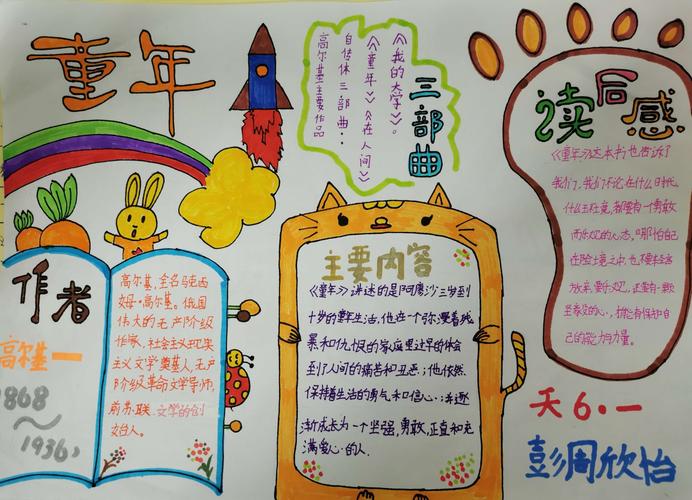 童年
《我的大学》。
《童年》《在人间》
自传体三部曲:
高尔基主要作品
三部曲
读后感
《童年》这本书,也告诉了
我们,我们不论在什么时代,
什么环境,都要有一颗勇敢
而乐观的心态。哪怕自己
在险境之中,也不要轻言
放弃,要乐观,还要有一颗
至善的心,相信有保护自
己的能力与力量。
作者
高尔基
1868
～
1936
高尔基,全名马克西
姆·高尔基。俄国
伟大的无产阶级
作家,社会主义现实
主义文学奠基人,无产
阶级革命文学导师,
前苏联文学的创
始人。
主要内容
《童年》讲述的是阿廖沙三岁到
十岁的童年生活,他在一个弥漫着残
暴和仇恨的家庭里过早的体会
到了人间的痛苦和丑恶;他依然
保持着生活的勇气和信心,并逐
渐成长为一个坚强,勇敢,正直和充
满爱心的人.
天6.一
彭周欣怡